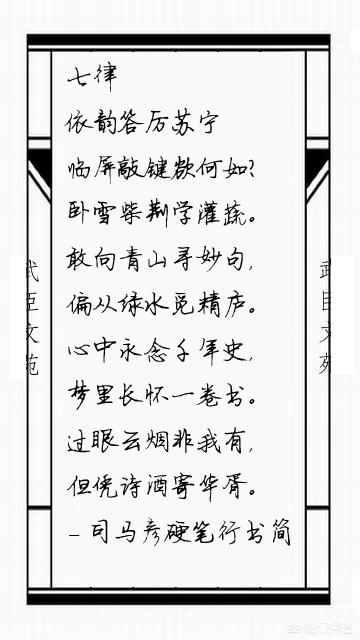 七律
依韵答厉苏宁
临屏敲键欲何如？
卧雪柴荆学灌蔬。
敢向青山寻妙句，
偏从绿水觅精庐。
心中永念千年史，
梦里长怀一卷书。
过眼云烟非我有，
但凭诗酒寄华胥。
- 司马彦硬笔行书简
武臣文苑
武臣文苑